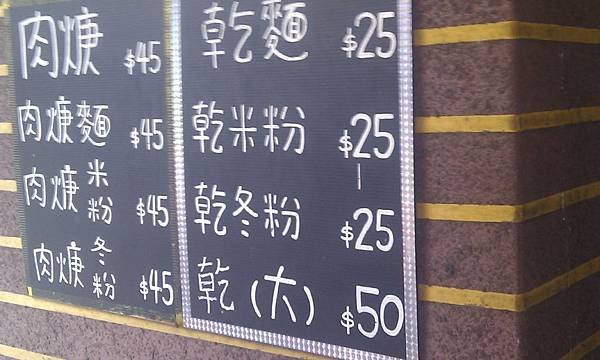 肉焿 $45
肉焿麵 $45
肉焿米粉 $45
肉焿冬粉 $45
乾麵 $25
乾米粉 $25
乾冬粉 $25
乾(大) $50